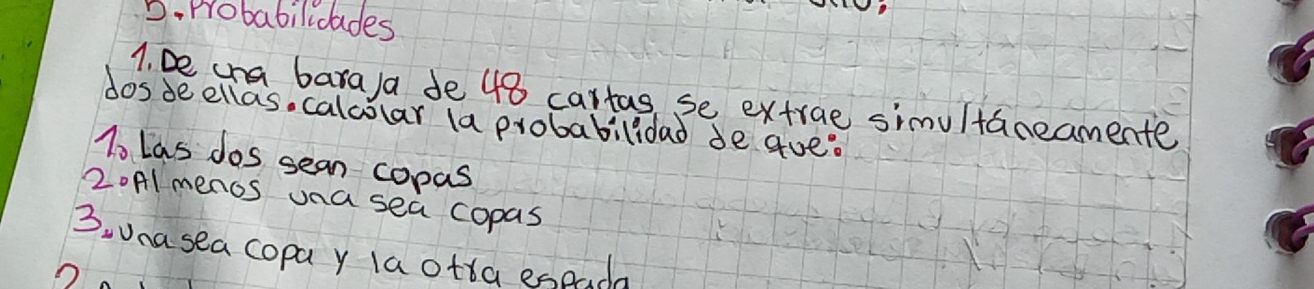 5. Probabilidades
1. De una baraja de 48 cartas se extrae simultáneamente
dos de ellas. calcolar la probabilidad de que:
1. Las dos sean copas
2. Al menos una sea copas
3. una sea copa y la otra espada
2.